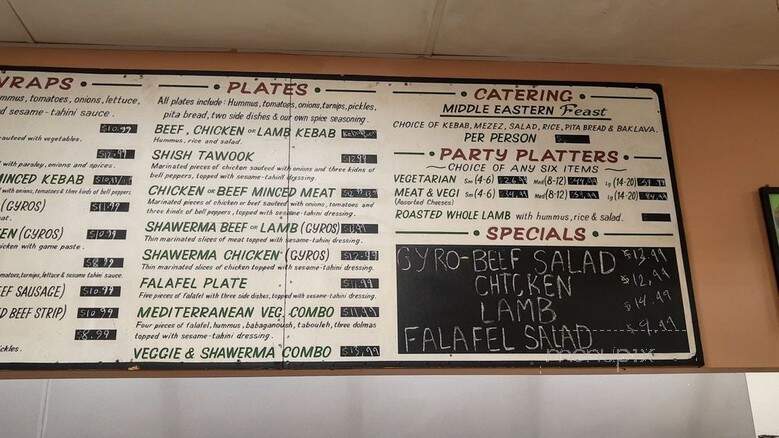 WRAPS
mmus, tomatoes, onions, lettuce,
d sesame-tahini sauce.
$10.99
auteed with vegetables.
with parsley, onions and spices.
MINCED KEBAB
with onions, tomatoes & three kinds of bell peppers
(GYROS)
EN (GYROS) $10.99
icken with game paste.
$8.99
matoes, turnips, lettuce & sesame tahini sauce.
EF SAUSAGE) $10.99
D BEEF STRIP) $10.99
$8.99
ckles.
PLATES
All plates include: Hummus, tomatoes, onions, turnips, pickles,
pita bread, two side dishes & our own spice seasoning.
BEEF, CHICKEN OR LAMB KEBAB
Hummus, rice and salad.
SHISH TAWOOK $12.99
Marinated pieces of chicken sauteed with onions and three kidns of
bell peppers, topped with sesame-tahini dressing.
CHICKEN OR BEEF MINCED MEAT
Marinated pieces of chicken or beef sauteed with onions, tomatoes and
three kinds of bell peppers, topped with sesame-tahini dressing.
SHAWERMA BEEF OR LAMB (GYROS)
Thin marinated slices of meat topped with sesame-tahini dressing.
SHAWERMA CHICKEN (GYROS) $12.99
Thin marinated slices of chicken topped with sesame-tahini dressing.
FALAFEL PLATE $11.99
Five pieces of falafel with three side dishes, topped with sesame-tahini dressing.
MEDITERRANEAN VEG. COMBO $11.99
Four pieces of falafel, hummus, babaganoush, tabouleh, three dolmas
topped with sesame-tahini dressing.
VEGGIE & SHAWERMA COMBO
CATERING
MIDDLE EASTERN Feast
CHOICE OF KEBAB, MEZEZ, SALAD, RICE, PITA BREAD & BAKLAVA.
PER PERSON
PARTY PLATTERS
CHOICE OF ANY SIX ITEMS
VEGETARIAN Sm (4-6) Med (8-12) Lg (14-20)
MEAT & VEGI Sm (4-6) Med (8-12) Lg (14-20)
(Assorted Cheeses)
ROASTED WHOLE LAMB with hummus, rice & salad.
SPECIALS
GYRO-BEEF SALAD $13.99
CHICKEN $12.99
LAMB $14.99
FALAFEL SALAD $9.99
menupix